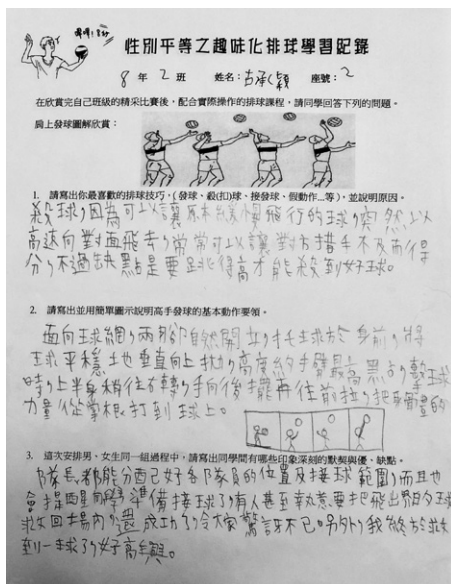 性別平等之趣味化排球學習記錄
8年2班 姓名：古承穎 座號：2
在欣賞完自己班級的精采比賽後，配合實際操作的排球課程，請同學回答下列的問題。
肩上發球圖解欣賞：
1. 請寫出你最喜歡的排球技巧，(發球、殺(扣)球、接發球、假動作...等)，並說明原因。
殺球，因為可以讓原本緩慢飛行的球，突然以
高速向對面飛去，常常可以讓對方措手不及而得
分，不過缺點是要跳得高才能殺到好球。
2. 請寫出並用簡單圖示說明高手發球的基本動作要領。
面向球網，兩腳自然開立，托球於身前，將
球平穩地垂直向上拋，高度約手臂最高點，擊球
時，上半身稍往右轉，手向後擺再往前拉，把身體的
力量從掌根打到球上。
3. 這次安排男、女生同一組過程中，請寫出同學間有哪些印象深刻的默契與優、缺點。
隊長都能分配好各隊員的位置及接球範圍，而且也
會提醒同學準備接球，有人甚至執意要把飛出界的球
救回場內，還成功了，令大家驚訝不已。另外，我終於救
到一球，好高興。